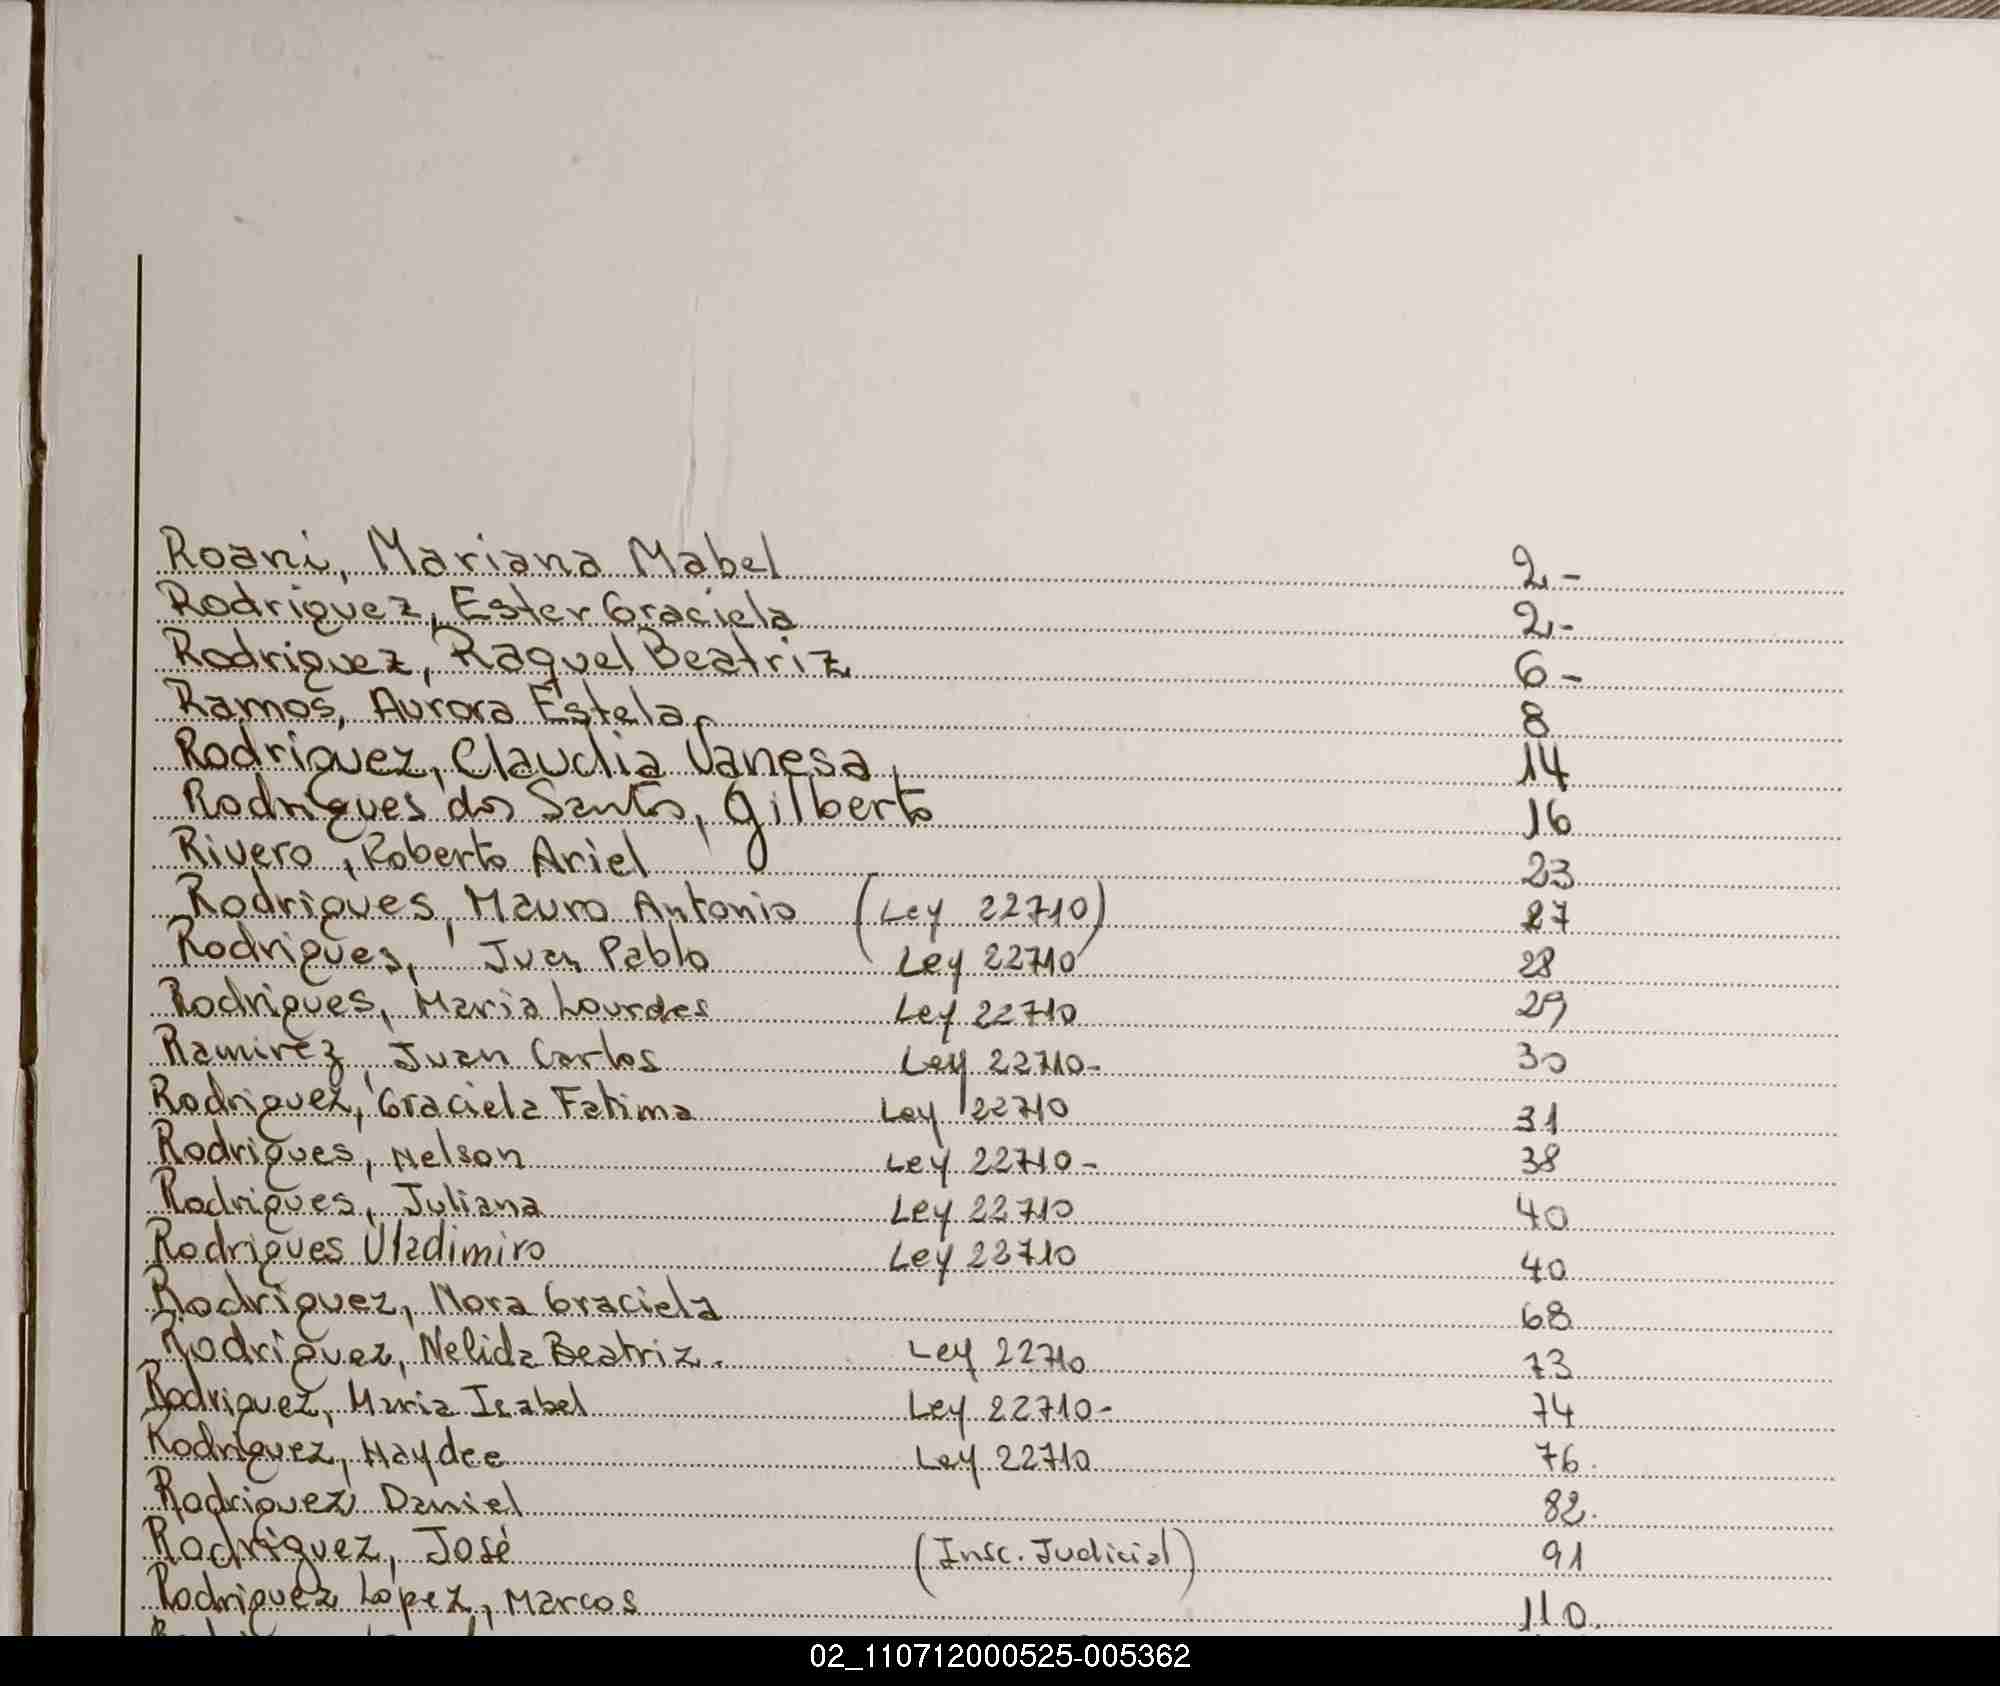 Roani, Mariana Mabel 2-
Rodriguez, Ester Graciela 2-
Rodriguez, Raquel Beatriz 6-
Ramos, Aurora Estela 8
Rodriguez, Claudia Vanesa 14
Rodrigues dos Santos, Gilberto 16
Rivero, Roberto Ariel 23
Rodrigues, Mauro Antonio (Ley 22710) 27
Rodrigues, Juan Pablo Ley 22710 28
Rodrigues, Maria Lourdes Ley 22710 29
Ramirez, Juan Carlos Ley 22710- 30
Rodriguez, Graciela Fatima Ley 22710 31
Rodrigues, Nelson Ley 22710- 38
Rodrigues, Juliana Ley 22710 40
Rodrigues Vladimiro Ley 22710 40
Rodriguez, Nora Graciela 68
Rodriguez, Nelida Beatriz. Ley 22710 73
Rodriguez, Maria Isabel Ley 22710- 74
Rodriguez, Haydee Ley 22710 76.
Rodriguez Daniel 82.
Rodriguez, José (Insc. Judicial) 91
Rodriguez López, Marcos 110.
02_110712000525-005362